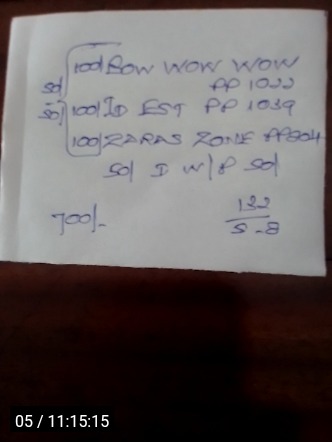 100/ BOW WOW WOW
50/ PP 1022
50/ 100/ ID EST PP 1039
100/ ZARAS ZONE PP804
50/ I W/P 50/
700/- 132
5-8
05 / 11:15:15